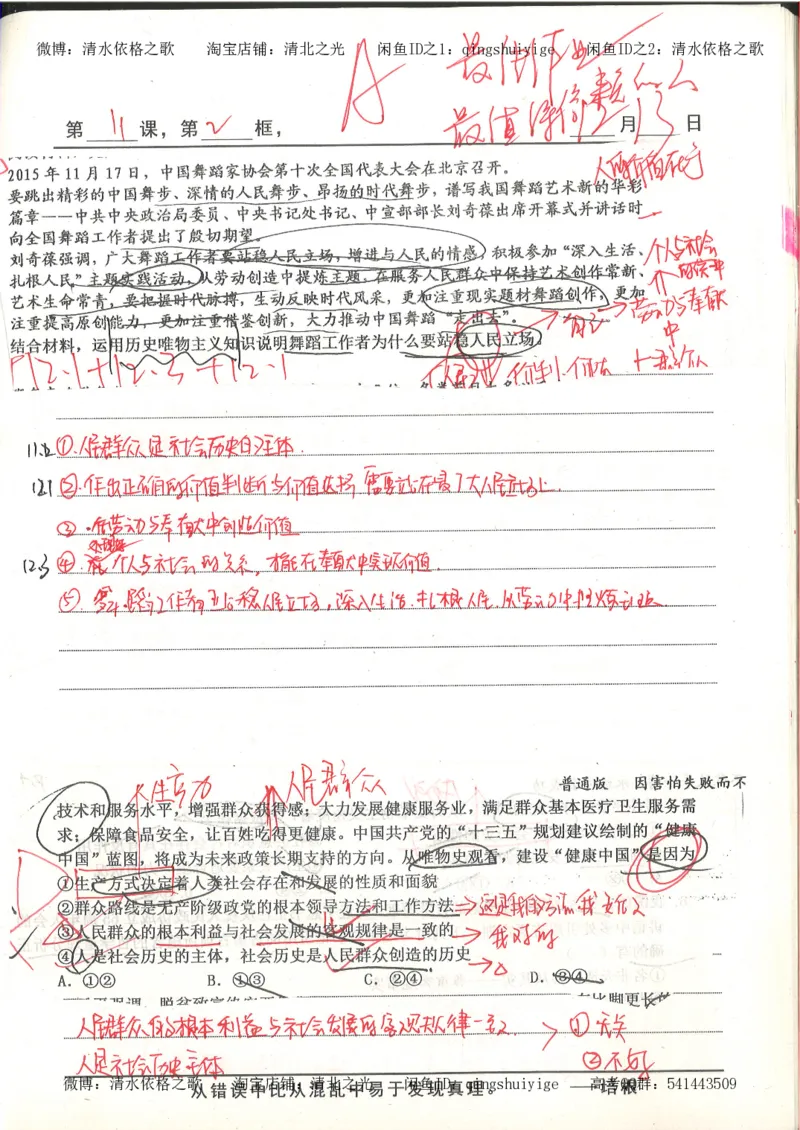 微博：清水依格之歌 淘宝店铺：清北之光 闲鱼ID之1：qingshuiyige 闲鱼ID之2：清水依格之歌
A
最值得
第 11 课，第 2 框， 月 13 日
2015 年 11 月 17 日，中国舞蹈家协会第十次全国代表大会在北京召开。
要跳出精彩的中国舞步、深情的人民舞步、昂扬的时代舞步，谱写我国舞蹈艺术新的华彩
篇章——中共中央政治局委员、中央书记处书记、中宣部部长刘奇葆出席开幕式并讲话时
向全国舞蹈工作者提出了殷切期望。
刘奇葆强调，广大舞蹈工作者要站稳人民立场，增进与人民的情感，积极参加“深入生活、
扎根人民”主题实践活动，从劳动创造中提炼主题，在服务人民群众中保持艺术创作常新、
艺术生命常青，要把握时代脉搏，生动反映时代风采，更加注重现实题材舞蹈创作，更加
注重提高原创能力，更加注重借鉴创新，大力推动中国舞蹈“走出去”。
结合材料，运用历史唯物主义知识说明舞蹈工作者为什么要站稳人民立场。
个人与社会
劳动与奉献
中
12.1+12.3+12.1
11.2 ①.人民群众是社会历史的主体.
12.1 ②.作出正确的价值判断与价值选择,需要站在最广大人民立场上.
③.在劳动与奉献中创造价值
12.3 ④. 个人与社会的关系,才能在奉献中实现价值.
⑤.舞蹈工作者 站稳人民立场,深入生活.扎根人民.从劳动中提炼主题.
大生产力 人民群众
普通版 因害怕失败而不
技术和服务水平，增强群众获得感；大力发展健康服务业，满足群众基本医疗卫生服务需
求；保障食品安全，让百姓吃得更健康。中国共产党的“十三五”规划建议绘制的“健康
中国”蓝图，将成为未来政策长期支持的方向。从唯物史观看，建设“健康中国”是因为
①生产方式决定着人类社会存在和发展的性质和面貌
②群众路线是无产阶级政党的根本领导方法和工作方法
③人民群众的根本利益与社会发展的客观规律是一致的 → 我对的
④人是社会历史的主体，社会历史是人民群众创造的历史
A．①② B．①③ C．②④ D．③④
人民群众的根本利益与社会发展的客观规律一致. > ①无关
人是社会历史主体 ②不是
微博：清水依格之歌 淘宝店铺：清北之光 闲鱼ID：qingshuiyige 高考QQ群：541443509
从错误中比从混乱中易于发现真理。 ——培根